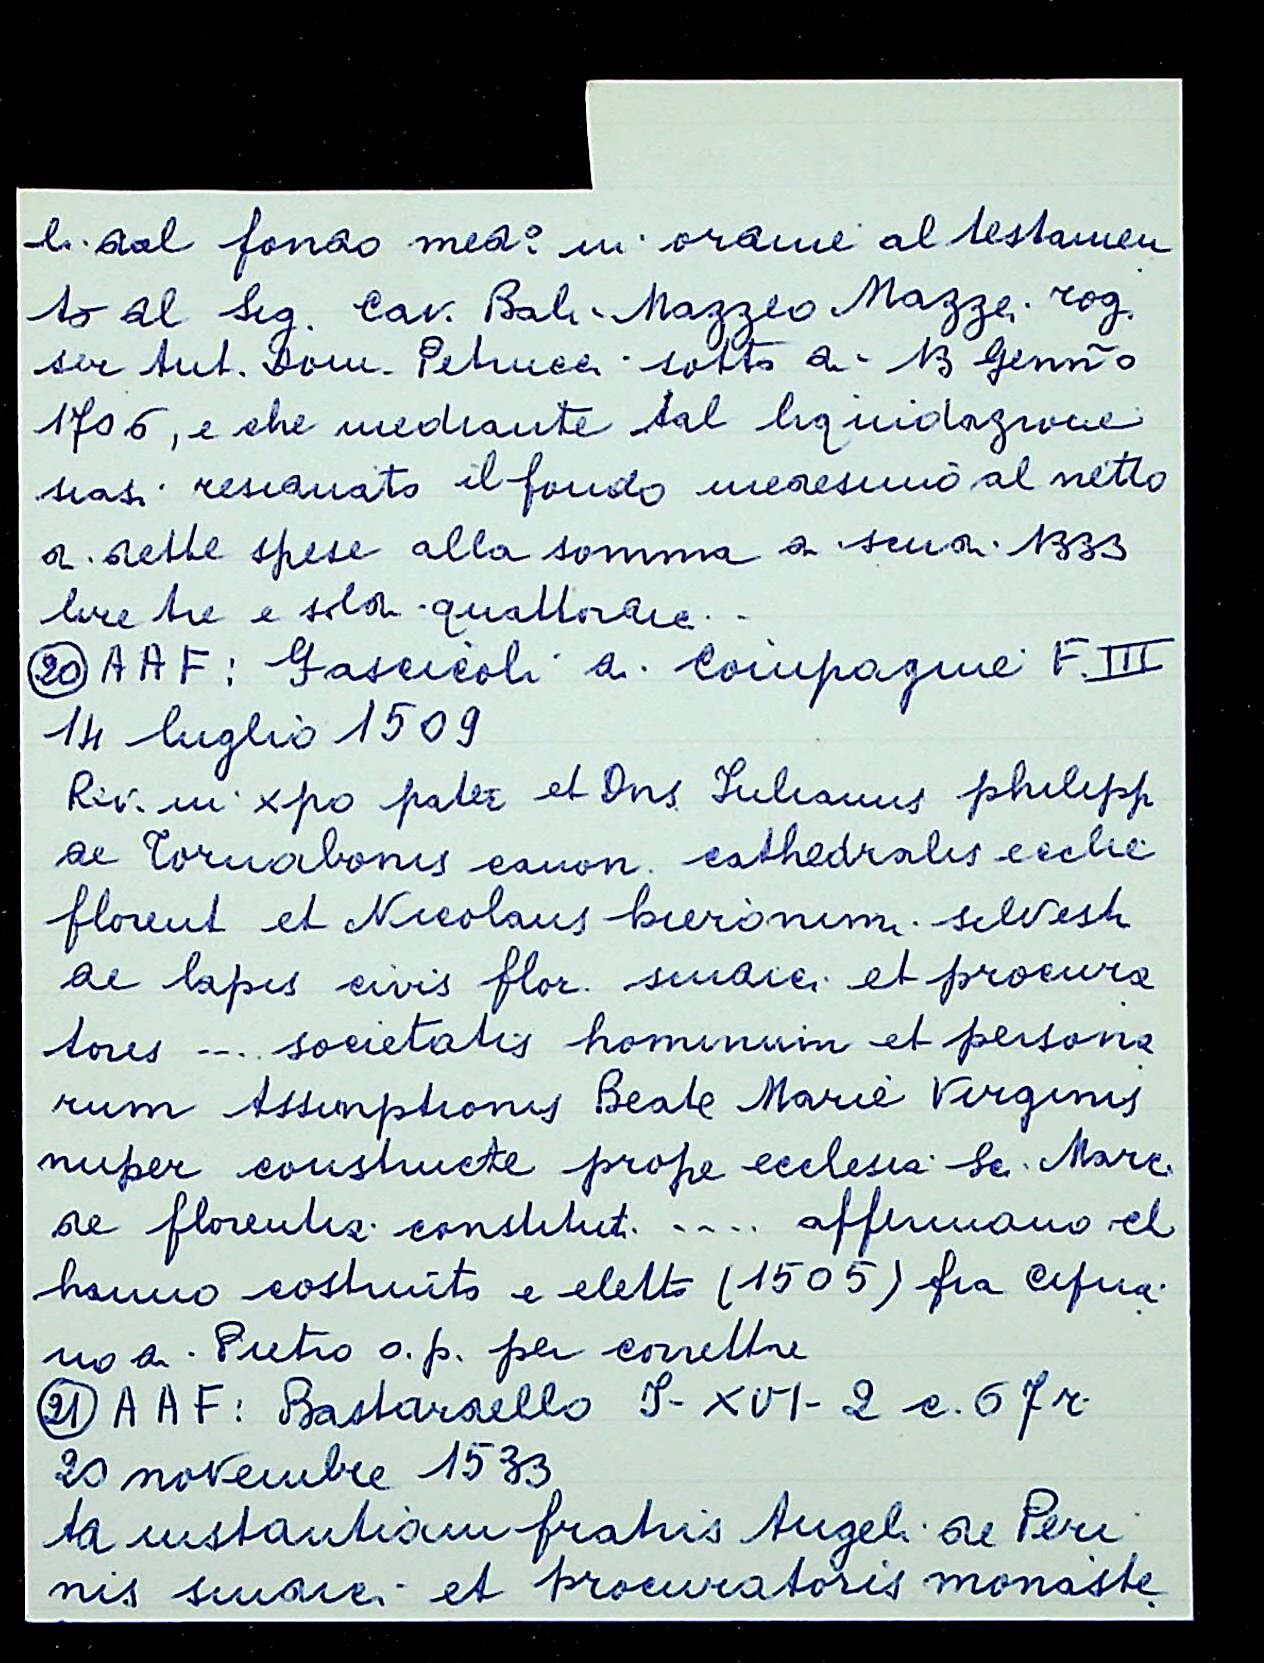 li dal fondo med:o in ordine al testamen
to del Sig. Cav. Bali Mazzeo Mazzei rog.
ser Ant. Dom. Petrucci sotto di 13 Genn~o
1706, e che mediante tal liquidazione
siasi residuato il fondo medesimo al netto
di dette spese alla somma di scudi 1333
lire tre e soldi quattordici..
20 AAF: Fascicoli di Compagnie F. III
14 luglio 1509
Rev. in xpo pater et Dns Julianus philippi
de Tornabonis canon. cathedralis ecclie
florent et Nicolaus hieronimi silvestri
de lapis civis flor. sindici et procura
tores .... societatis hominum et persona
rum Assumptionis Beate Marie Virginis
nuper constructe prope ecclesia Sci. Marci
de florentia constitut. ..... affermano ch
hanno costruito e eletto (1505) fra Cipria
no di Pietro o.p. per correttore
21 AAF: Bastardello I-XVI-2 c. 67r
20 novembre 1533
Ad instantiam fratris Angeli de Peri
nis sindici et procuratoris monaste